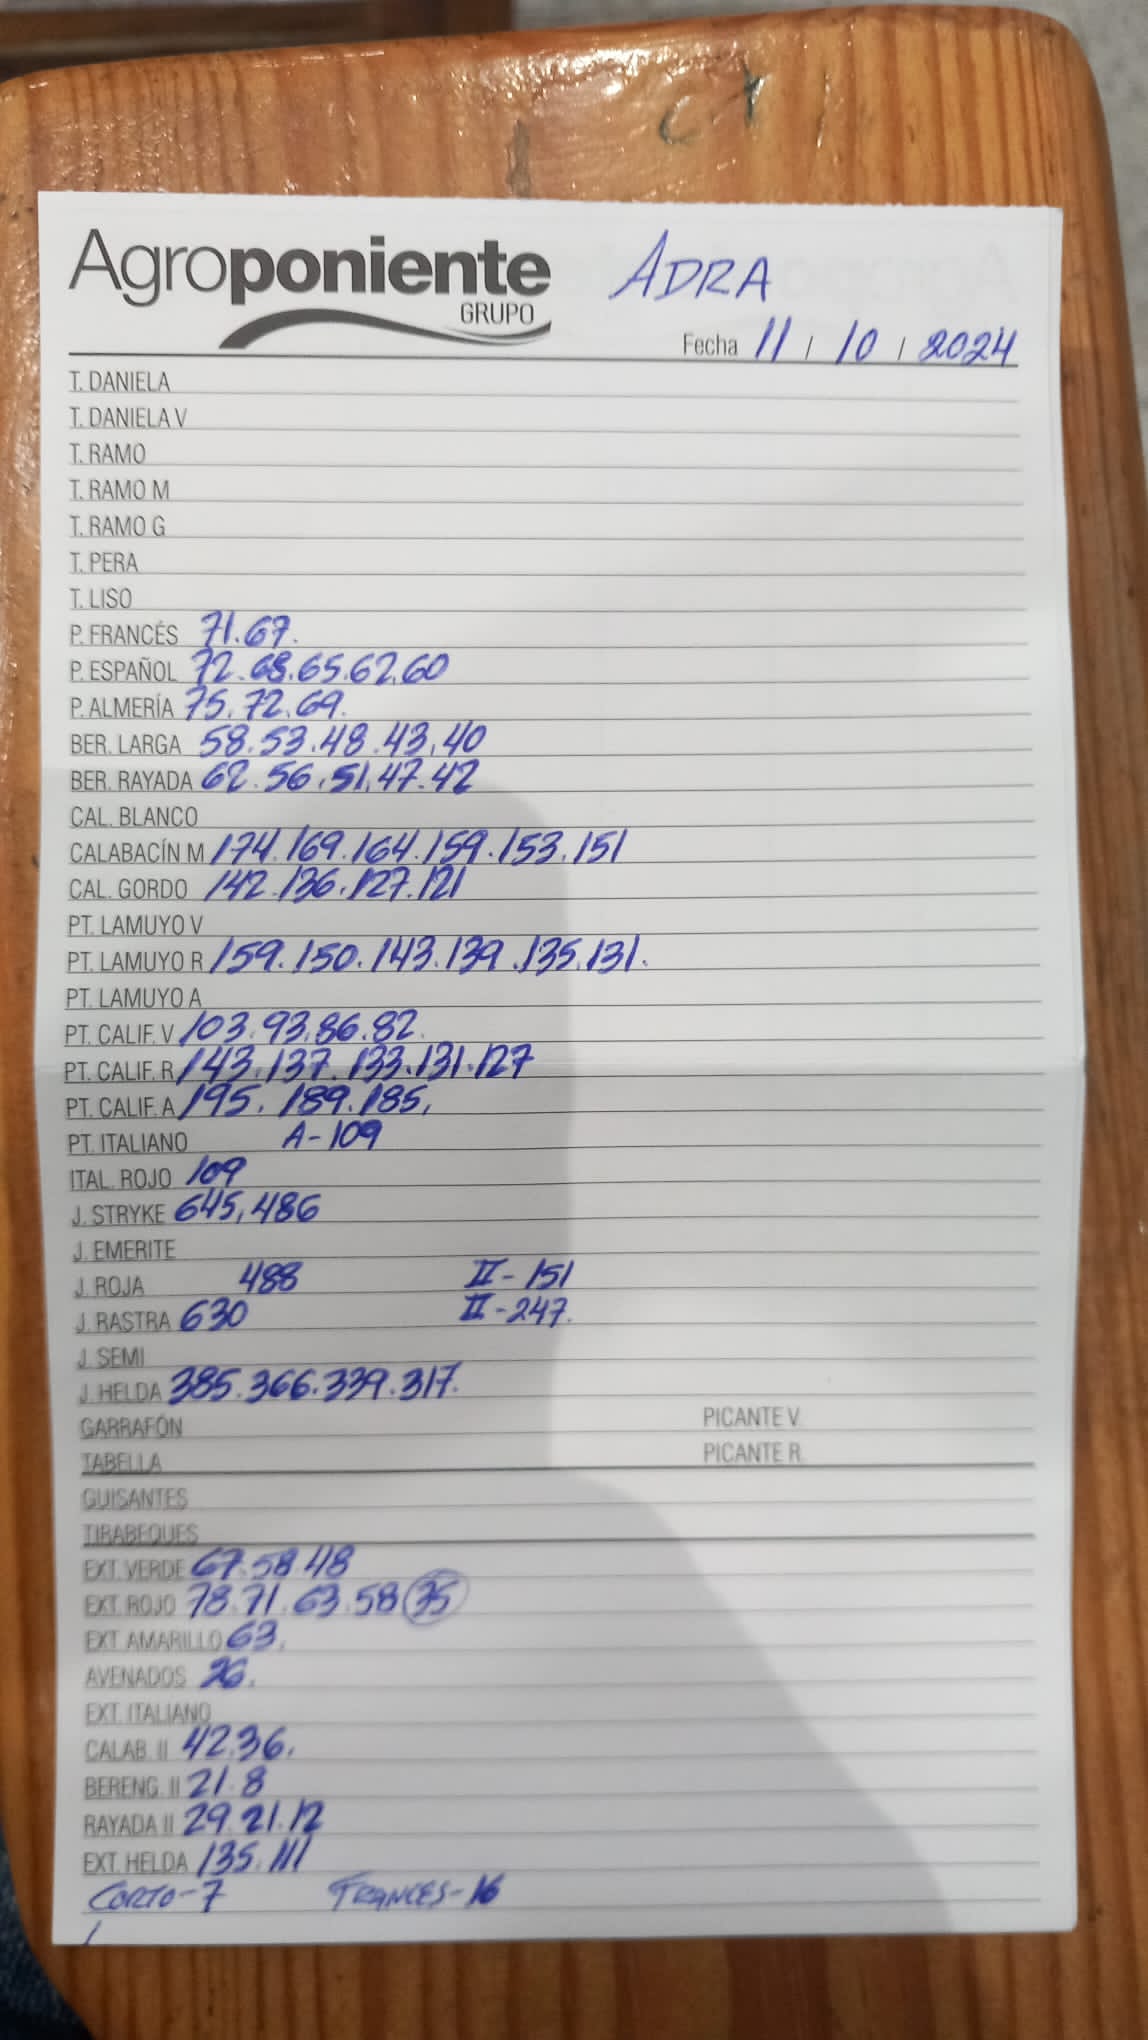 Agroponiente ADRA
GRUPO
Fecha 11 / 10 / 2024
T. DANIELA
T. DANIELA V
T. RAMO
T. RAMO M
T. RAMO G
T. PERA
T. LISO
P. FRANCÉS 71.67.
P. ESPAÑOL 72.68.65.62.60
P. ALMERÍA 75.72.69.
BER. LARGA 58.53.48.43.40
BER. RAYADA 62.56.51.47.42
CAL. BLANCO
CALABACÍN M 174.169.164.159.153.151
CAL. GORDO 142.136.127.121
PT. LAMUYO V
PT. LAMUYO R 159.150.143.139.135.131.
PT. LAMUYO A
PT. CALIF. V 103.93.86.82.
PT. CALIF. R 143.137.133.131.127
PT. CALIF. A 195.189.185,
PT. ITALIANO A-109
ITAL. ROJO 109
J. STRYKE 645,486
J. EMERITE
J. ROJA 488 II-151
J. RASTRA 630 II-247.
J. SEMI
J. HELDA 385.366.339.317.
GARRAFÓN PICANTE V.
TABELLA PICANTE R.
GUISANTES
TIRABEQUES
EXT. VERDE 67.58.48
EXT. ROJO 78.71.63.58 35
EXT. AMARILLO 63.
AVENADOS 26.
EXT. ITALIANO
CALAB. II 42.36.
BERENG. II 21.8
RAYADA II 29.21.12
EXT. HELDA 135.111
CORTO-7 FRANCES-16